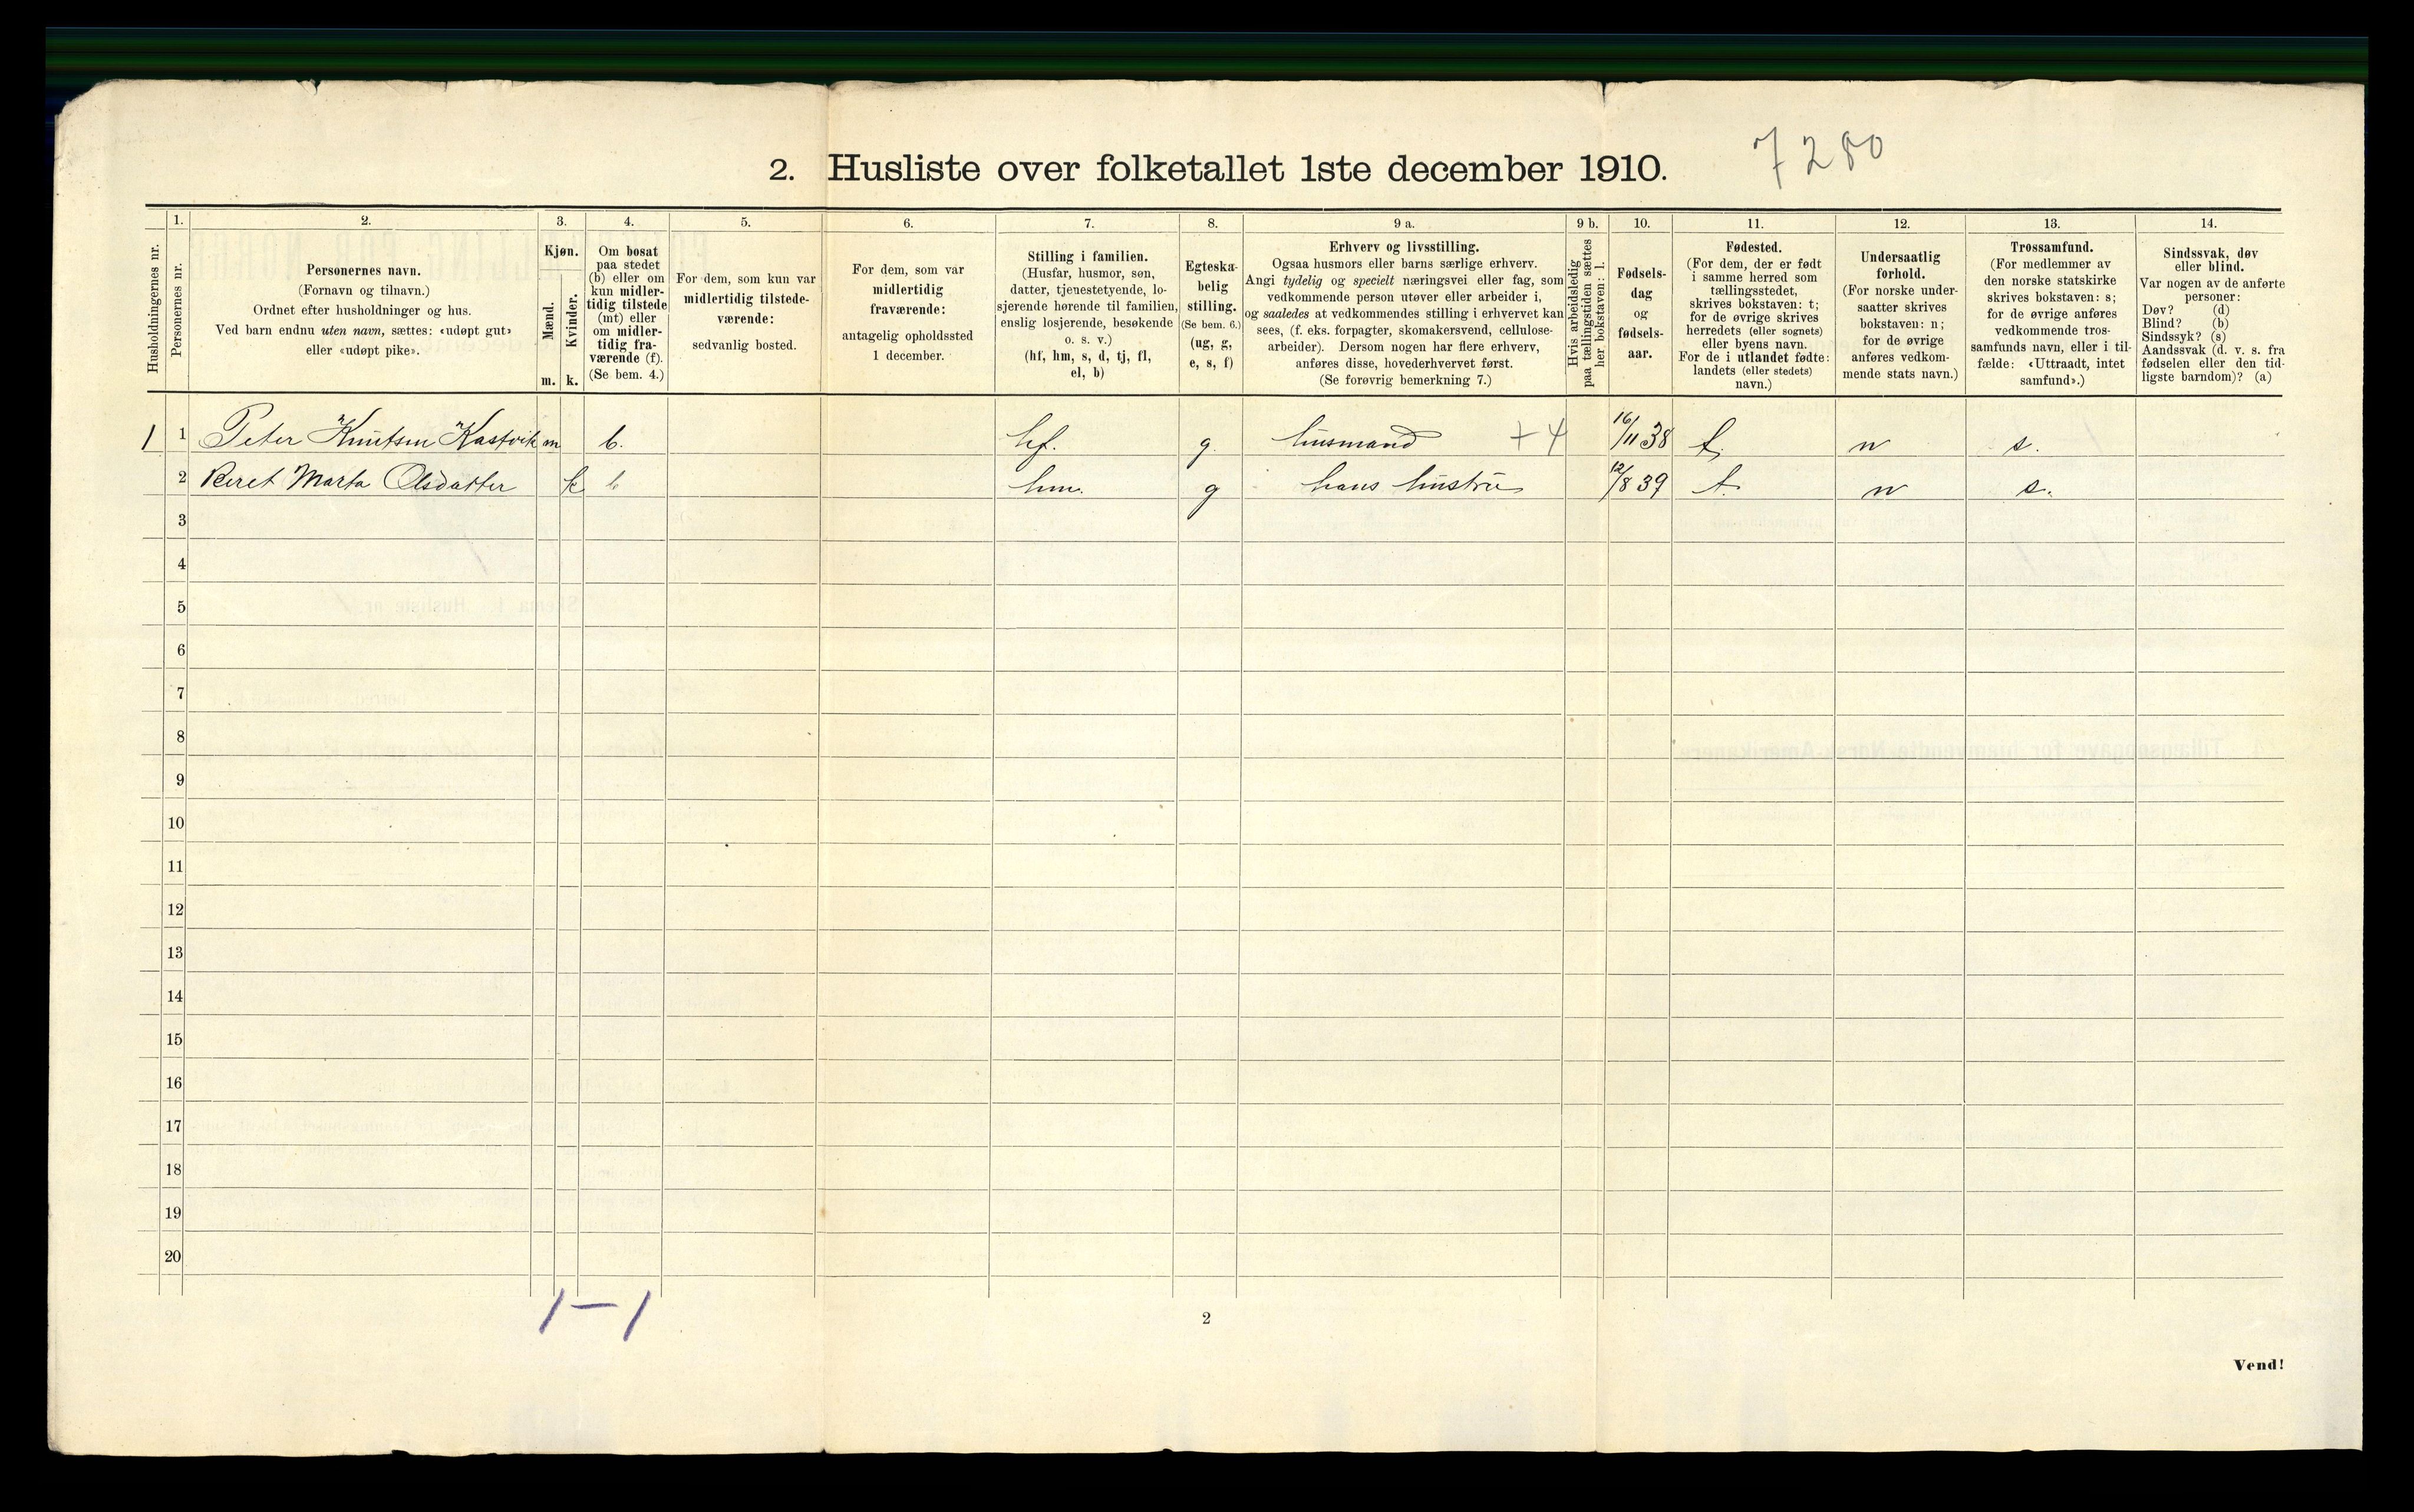 2. Husliste over folketallet 1ste december 1910.
7280
Husholdningernes nr.
1.
Personernes nr.
2.
Personernes navn.
(Fornavn og tilnavn.)
Ordnet efter husholdninger og hus.
Ved barn endnu uten navn, sættes: «udøpt gut»
eller «udøpt pike».
3.
Kjøn.
Mænd.
Kvinder.
m. k.
4.
Om bosat
paa stedet
(b) eller om
kun midler-
tidig tilstede
(mt) eller
om midler-
tidig fra-
værende (f).
(Se bem. 4.)
5.
For dem, som kun var
midlertidig tilstede-
værende:
sedvanlig bosted.
6.
For dem, som var
midlertidig
fraværende:
antagelig opholdssted
1 december.
7.
Stilling i familien.
(Husfar, husmor, søn,
datter, tjenestetyende, lo-
sjerende hørende til familien,
enslig losjerende, besøkende
o. s. v.)
(hf, hm, s, d, tj, fl,
el, b)
8.
Egteska-
belig
stilling.
(Se bem. 6.)
(ug, g,
e, s, f)
9 a.
Erhverv og livsstilling.
Ogsaa husmors eller barns særlige erhverv.
Angi tydelig og specielt næringsvei eller fag, som
vedkommende person utøver eller arbeider i,
og saaledes at vedkommendes stilling i erhvervet kan
sees, (f. eks. forpagter, skomakersvend, cellulose-
arbeider). Dersom nogen har flere erhverv,
anføres disse, hovederhvervet først.
(Se forøvrig bemerkning 7.)
9 b.
Hvis arbeidsledig
paa tællingstiden sættes
her bokstaven: l.
10.
Fødsels-
dag
og
fødsels-
aar.
11.
Fødested.
(For dem, der er født
i samme herred som
tællingsstedet,
skrives bokstaven: t;
for de øvrige skrives
herredets (eller sognets)
eller byens navn.
For de i utlandet fødte:
landets (eller stedets)
navn.)
12.
Undersaatlig
forhold.
(For norske under-
saatter skrives
bokstaven: n;
for de øvrige
anføres vedkom-
mende stats navn.)
13.
Trossamfund.
(For medlemmer av
den norske statskirke
skrives bokstaven: s;
for de øvrige anføres
vedkommende tros-
samfunds navn, eller i til-
fælde: «Uttraadt, intet
samfund».)
14.
Sindssvak, døv
eller blind.
Var nogen av de anførte
personer:
Døv? (d)
Blind? (b)
Sindssyk? (s)
Aandssvak (d. v. s. fra
fødselen eller den tid-
ligste barndom)? (a)
1 1 Peter Knutsen Kastvik m b. hf. g. husmand +4 16/11 38 t. n s.
2 Beret Marta Olsdatter k b hm. g hans hustru 12/8 39 t. n s.
3
4
5
6
7
8
9
10
11
12
13
14
15
16
17
18
19
20
1 - 1
2
Vend!